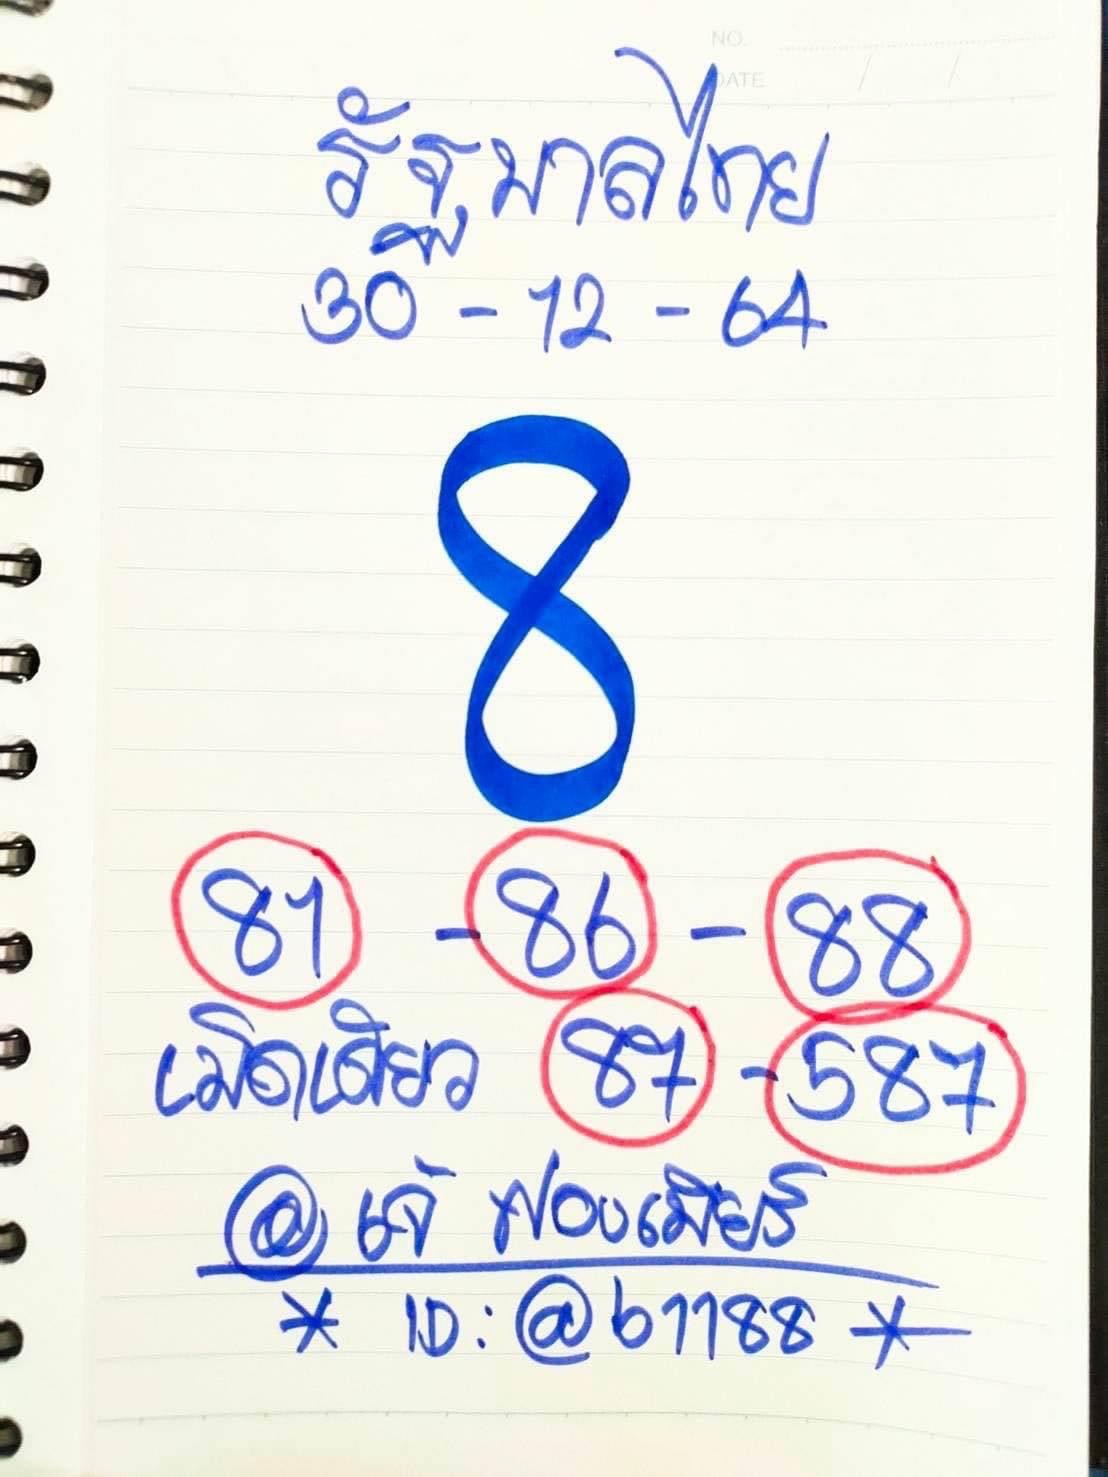 NO.
DATE / /
รัฐบาลไทย
30 - 12 - 64
8
81 - 86 - 88
เม็ดเดียว 87 - 587
@ เจ๊ ฟองเบียร์
* ID: @b1188 *